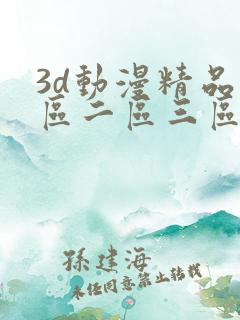 3d動漫精品
區二區三區
孫建海
未经同意禁止转载